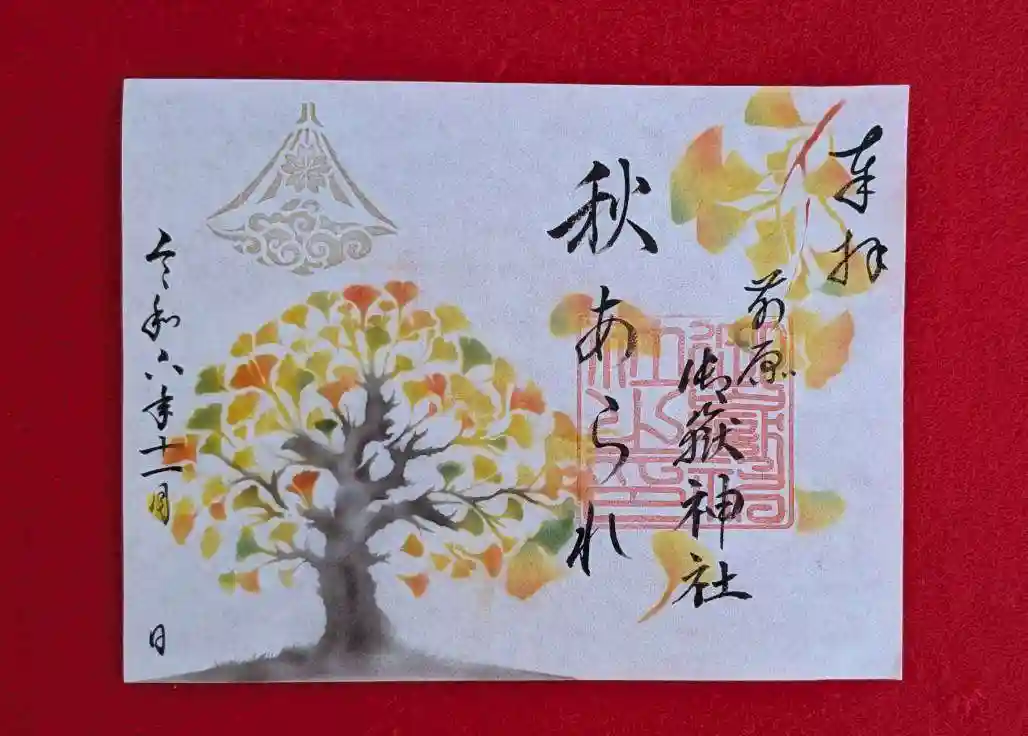 奉拝
前原
御嶽神社
秋あられ
令和六年十一月　日